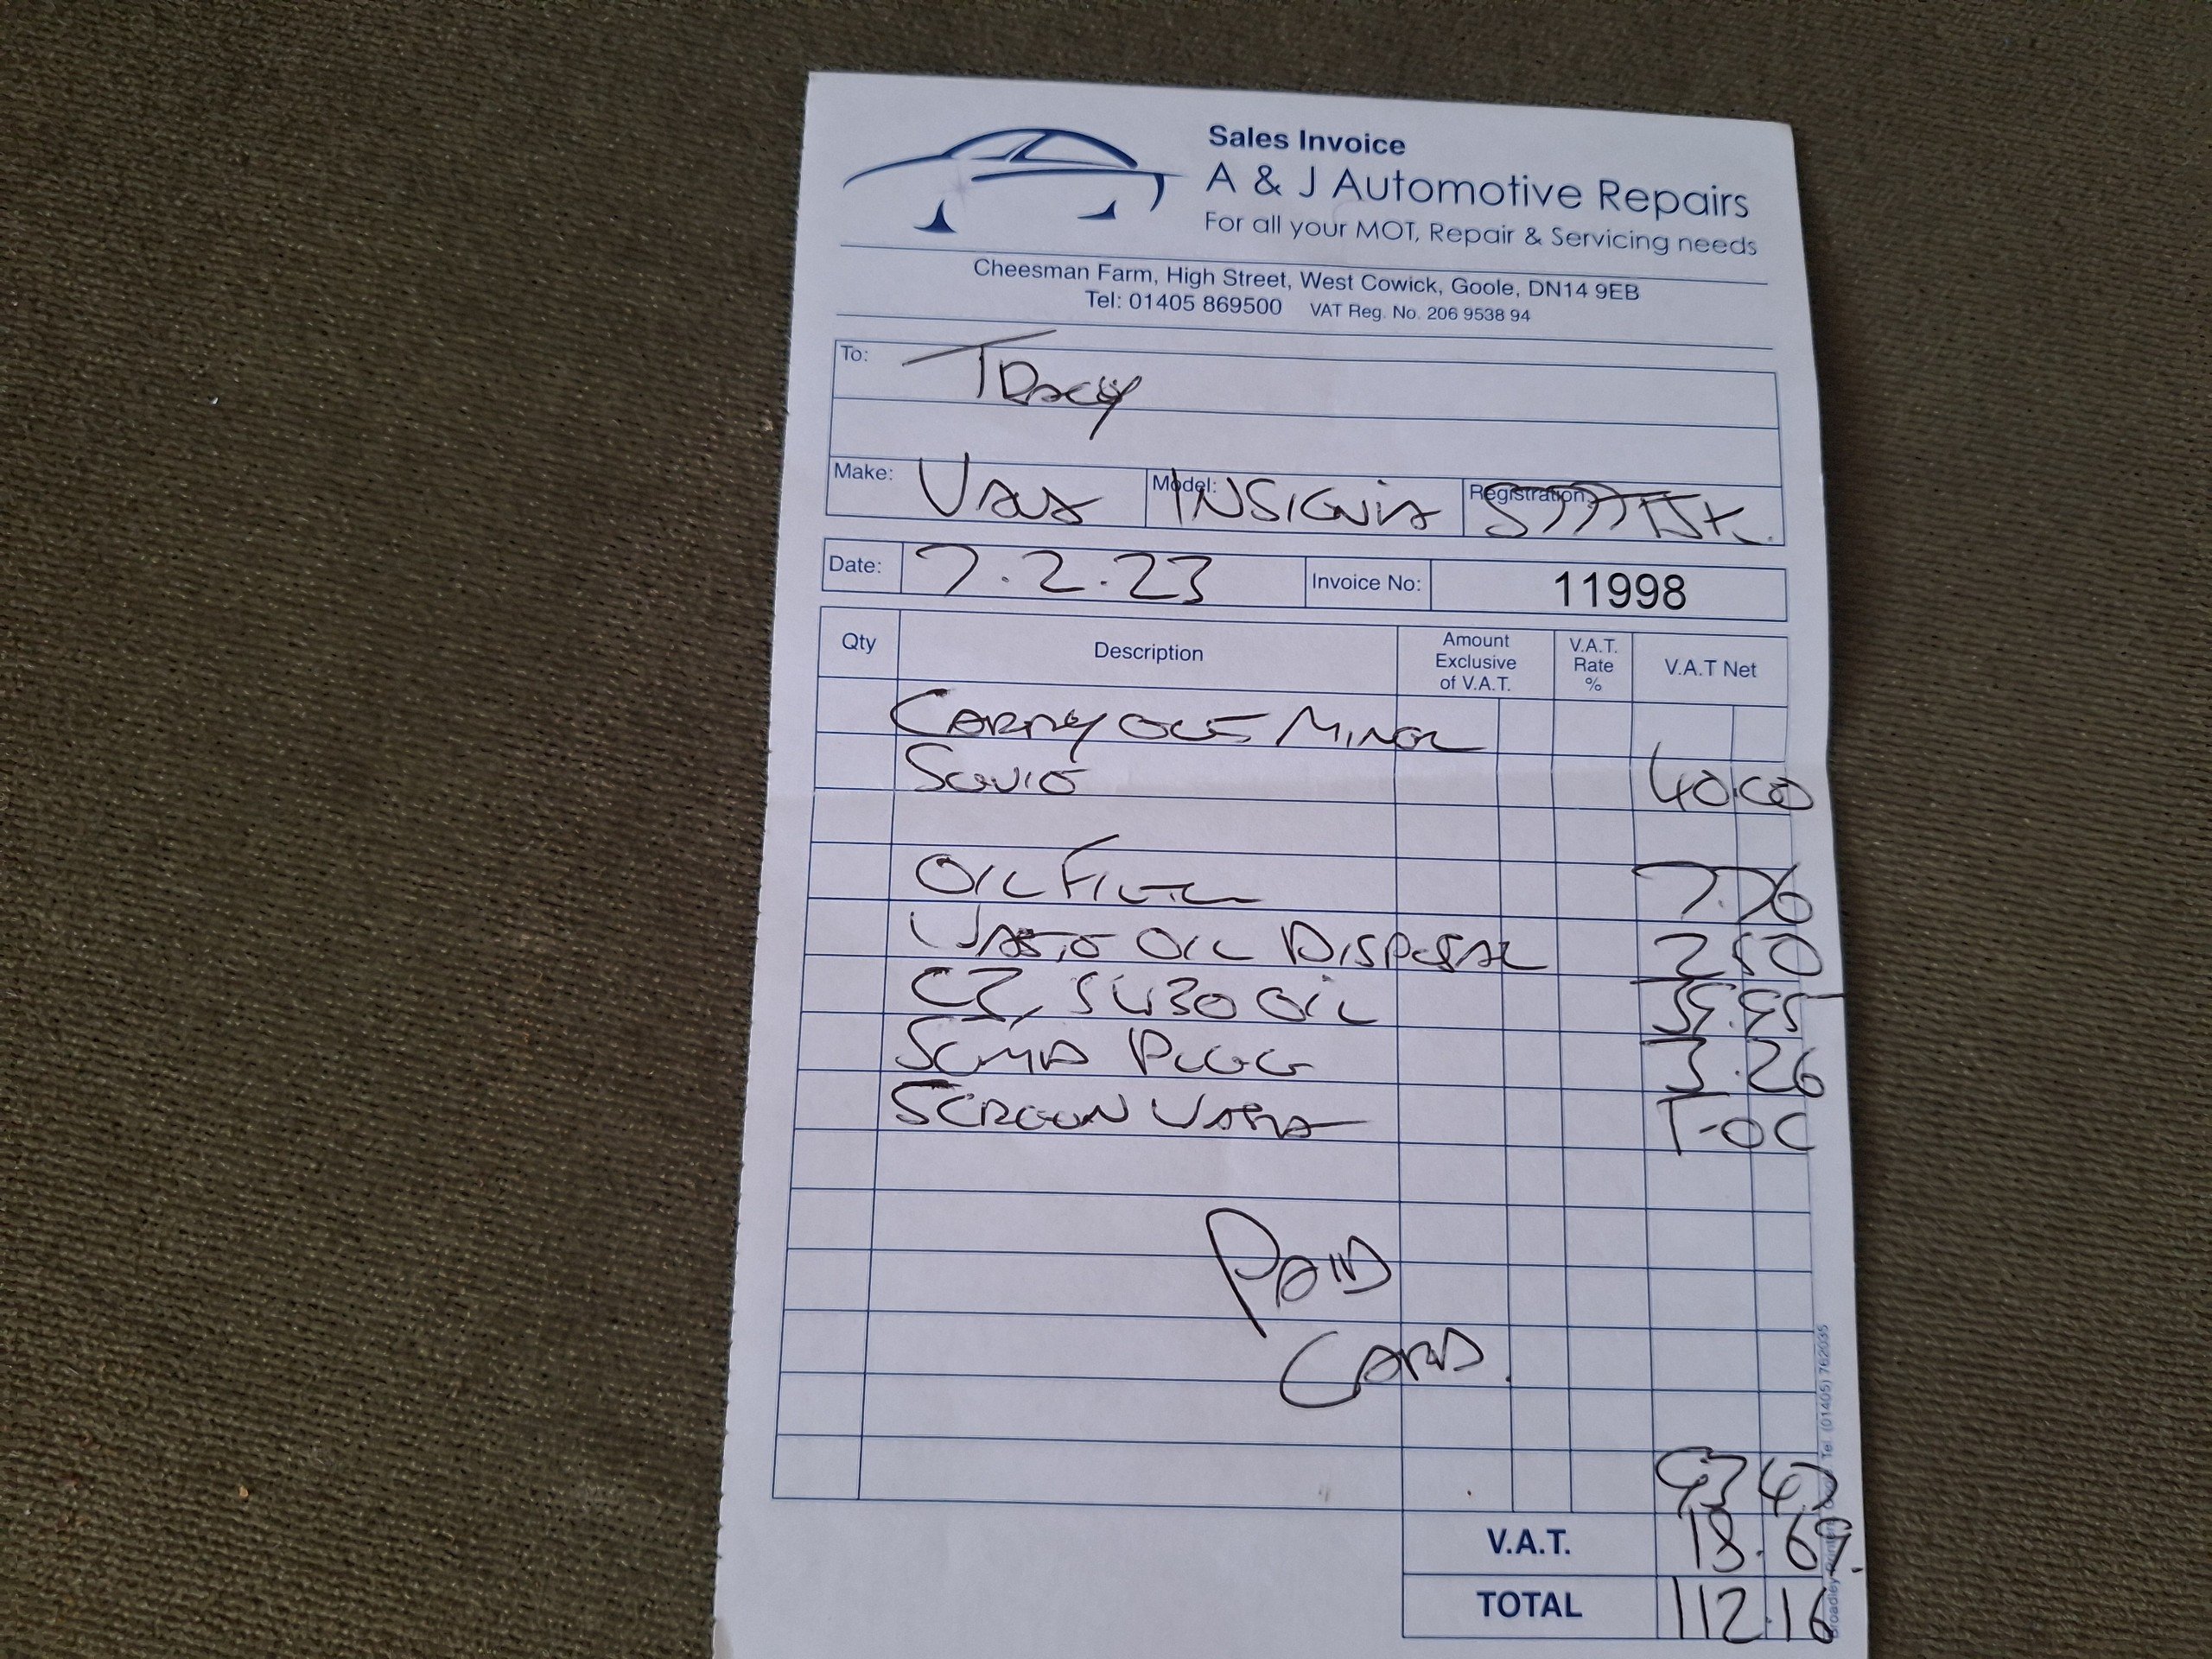 Sales Invoice
A & J Automotive Repairs
For all your MOT, Repair & Servicing needs
Cheesman Farm, High Street, West Cowick, Goole, DN14 9EB
Tel: 01405 869500 VAT Reg. No. 206 9538 94
To: Tracy
Make: Vaux Model: INSIGNIA Registration:
Date: 7.2.23 Invoice No: 11998
Qty Description Amount Exclusive of V.A.T. V.A.T. Rate % V.A.T Net
CARRY OUT MINOR
SERVICE 40.00
OIL FILTER 7.76
WASTE OIL DISPOSAL 2.50
C3, 5W30 OIL 39.95
SUMP PLUG 3.26
SCREEN WASH F.O.C
PAID
CARD.
93.47
V.A.T. 18.69.
TOTAL 112.16
Tel. (01405) 762035